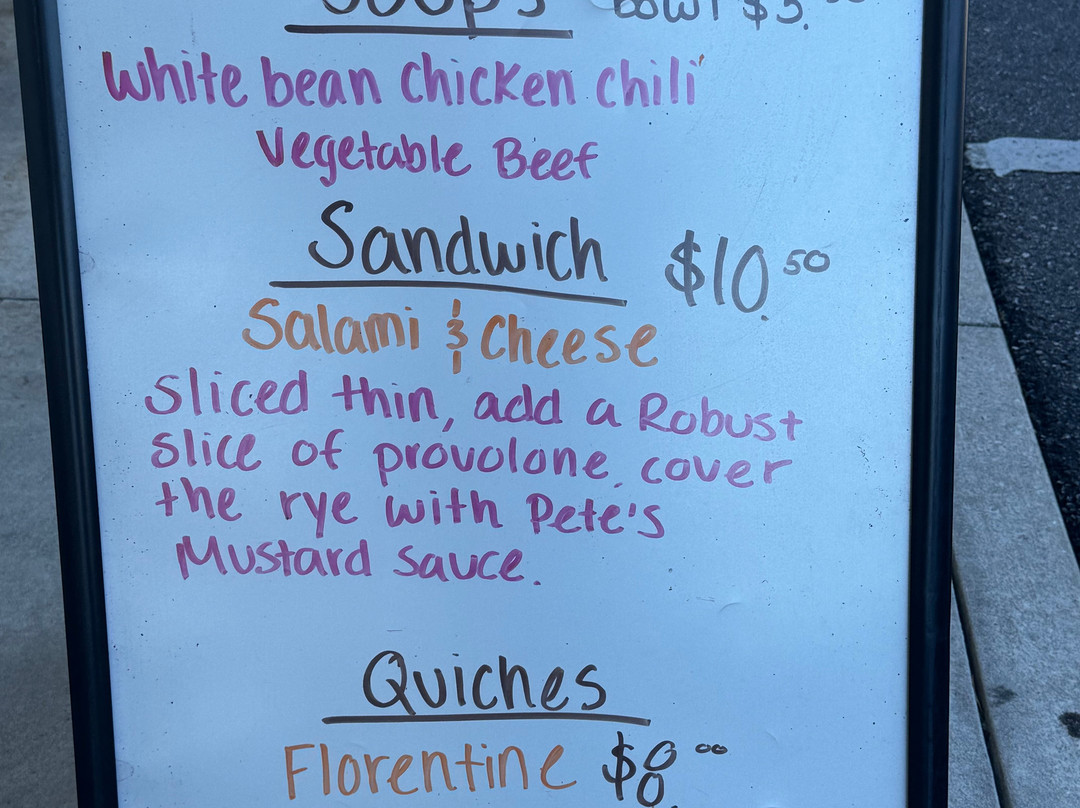 Soups Bowl $5.
White bean chicken chili
Vegetable Beef
Sandwich $10.50
Salami & Cheese
Sliced thin, add a Robust
slice of provolone, cover
the rye with Pete's
Mustard sauce.
Quiches
Florentine $8.00